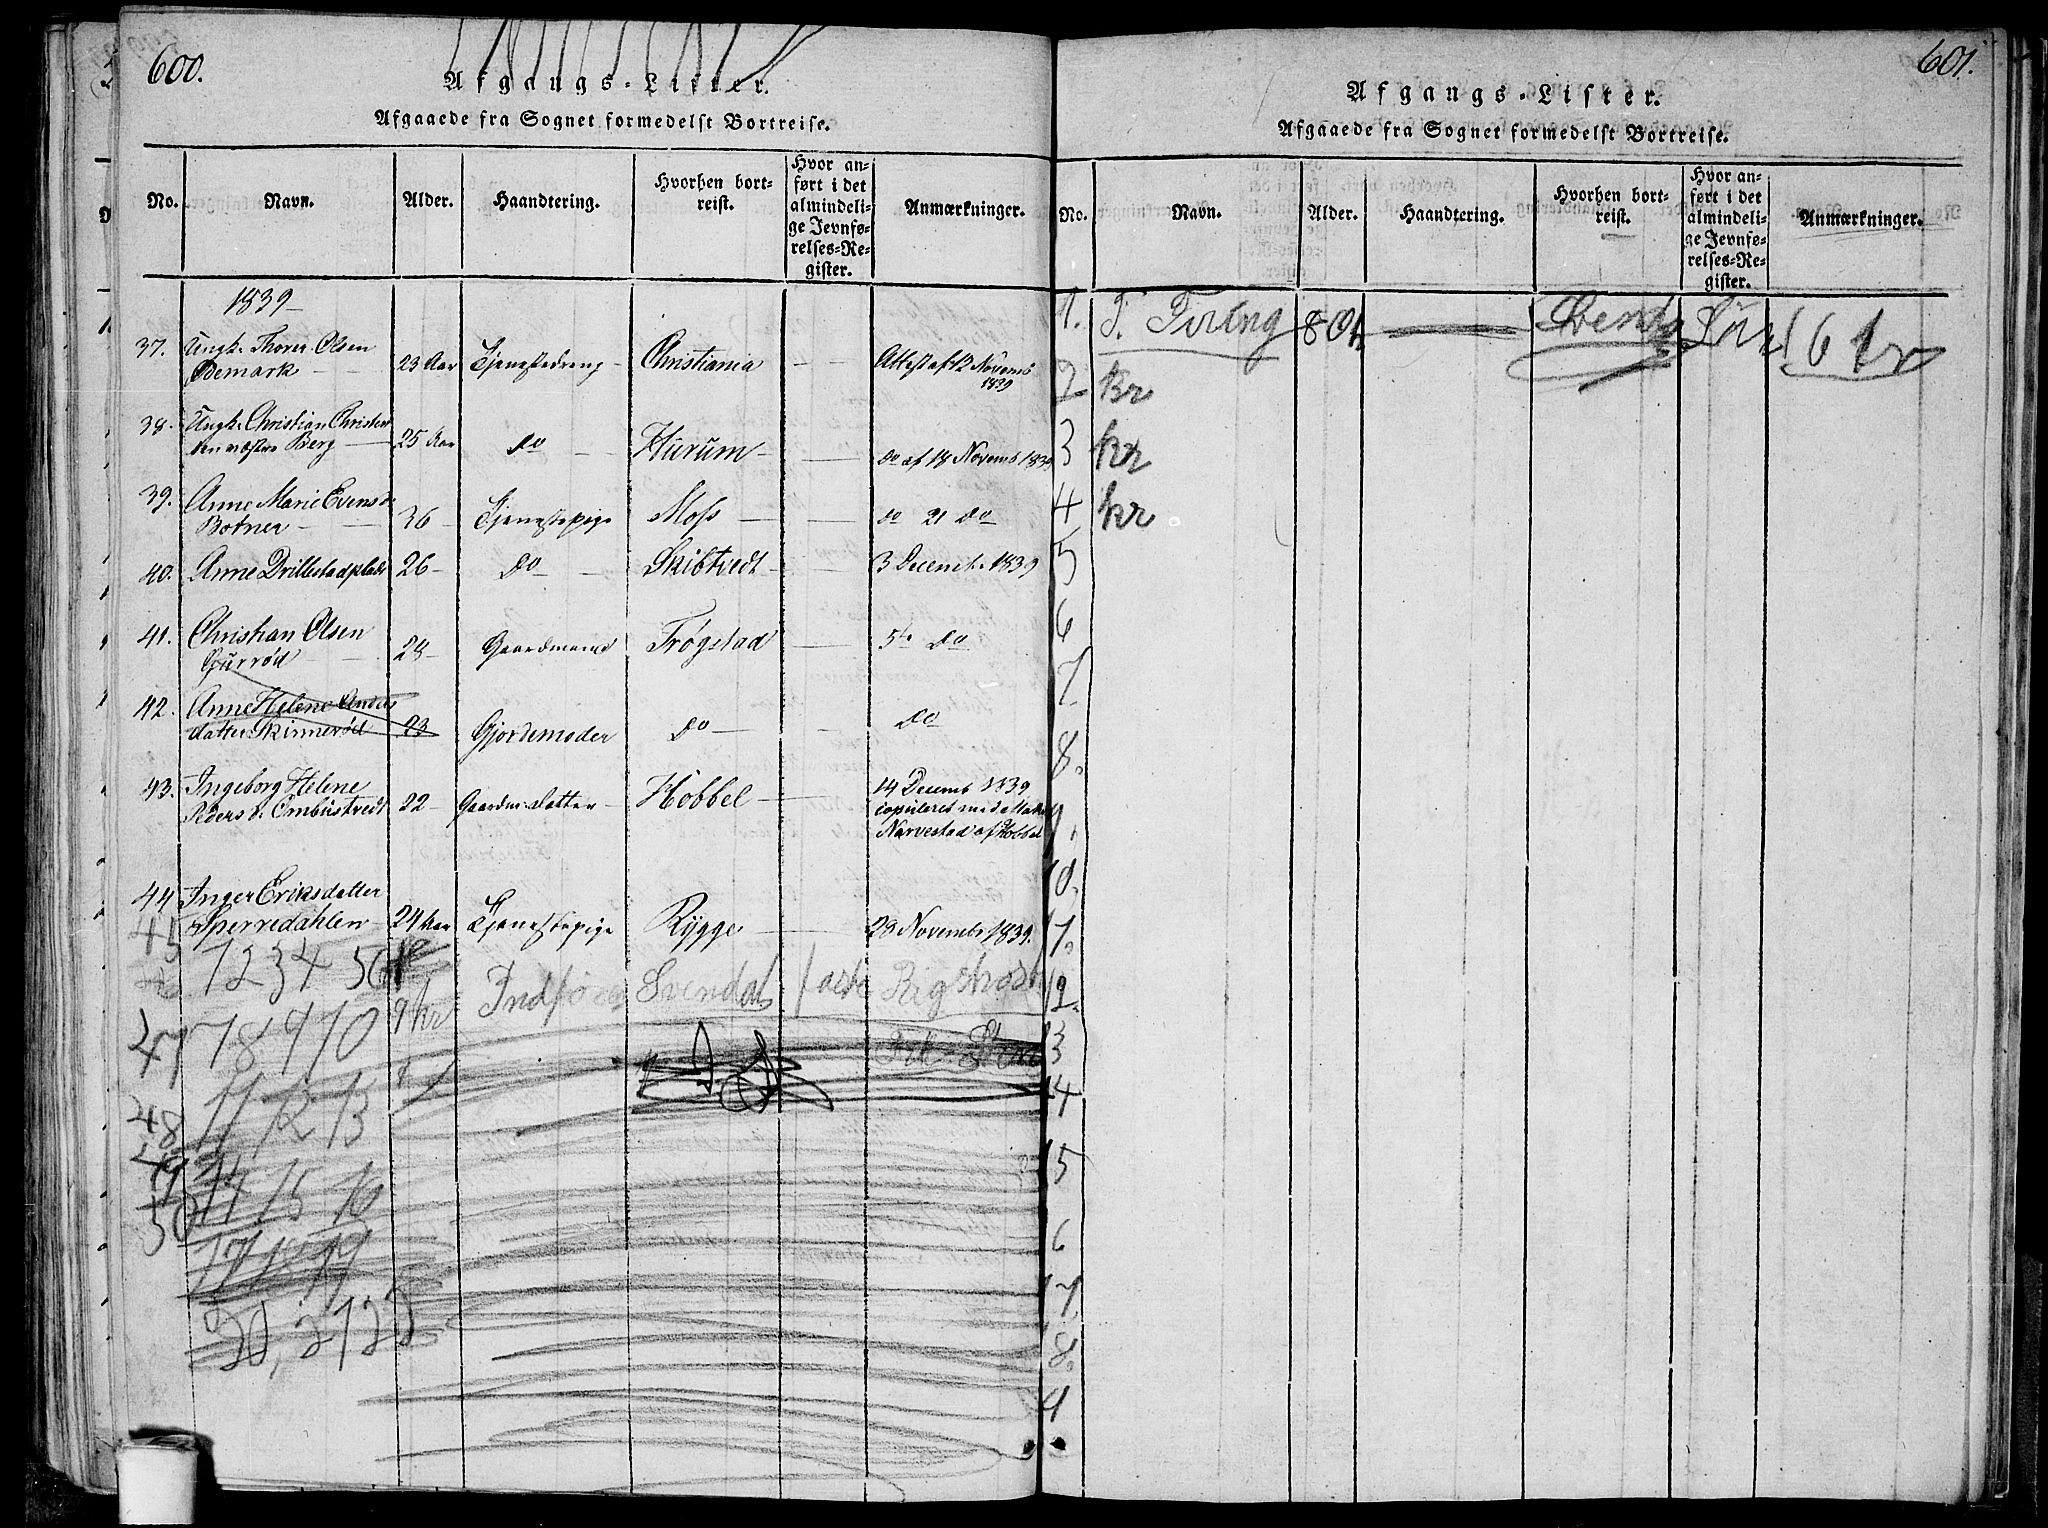 600.
Afgangs-Lister.
Afgaaede fra Sognet formedelst Bortreise.
No. Navn. Alder. Haandtering. Hvorhen bortreist. Hvor anført i det almindelige Jevnførelses-Register. Anmærkninger.
1839
37. Ungk. Thorer Olsen
Bemark 23 Aar Tjenestedreng Christiania Attest af 12 Novemb 1839
38. Ungk. Christian Christen
sen Berg 25 Aar do Hurum do af 18 Novemb 1839
39. Anne Marie Evensd.
Botner 36 Tjenestepige Moss do 21 do
40. Anne Drillestadplads 26 do Skibtvedt 3 Decemb. 1839
41. Christian Olsen
Gurrød 28 Gaardmand Trøgstad 5te do
42. Anne Helene Anders
datter Skinnerød 23 Gjordemoder do do
43. Ingeborg Helene
Peders d. Ombustvedt 22 Gaardm. Datter Hobbel 14 Decemb 1839
copuleret med
Narvestad af Hobbel
44 Inger Eriksdatter
Sperredahlen 24 Aar Tjenestepige Rygge 28 Novemb 1839.
45
1 2 3 4 5 6
Svendal
47 7 8 9 10 9 kr
11 12 13
48
49 14 15 16
50
17 18 19
20, 21 22
601.
Afgangs-Lister.
Afgaaede fra Sognet formedelst Bortreise.
No. Navn. Alder. Haandtering. Hvorhen bortreist. Hvor anført i det almindelige Jevnførelses-Register. Anmærkninger.
1.
2 kr
3 kr
4 kr
5
6
7
8.
9.
10.
11.
12
13
14
15
6
17
18.
9